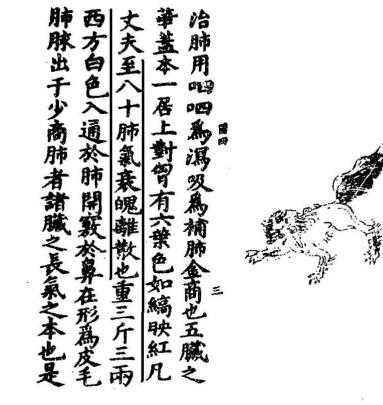 圖四
三
治肺用呬呬爲瀉吸爲補肺金商也五臟之
華蓋本一居上對胷有六葉色如縞映紅凡
丈夫至八十肺氣衰魄離散也重三斤三兩
西方白色入通於肺開竅於鼻在形爲皮毛
肺脉出于少商肺者諸臟之長氣之本也是